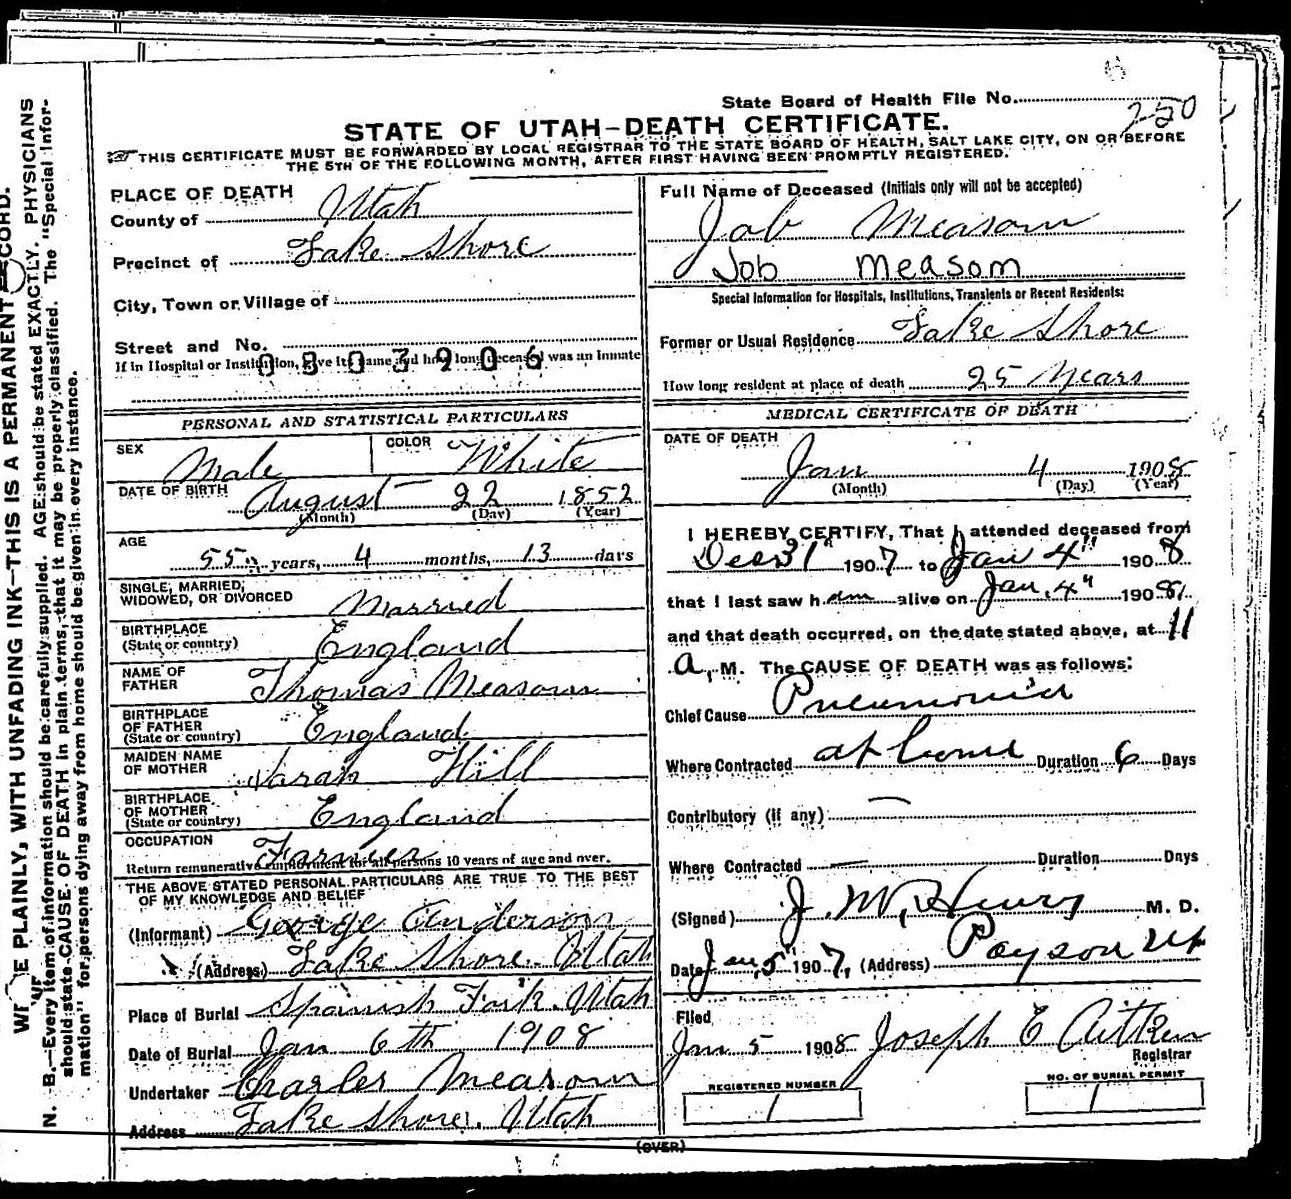 State Board of Health File No. 250
STATE OF UTAH—DEATH CERTIFICATE.
THIS CERTIFICATE MUST BE FORWARDED BY LOCAL REGISTRAR TO THE STATE BOARD OF HEALTH, SALT LAKE CITY, ON OR BEFORE
THE 5TH OF THE FOLLOWING MONTH, AFTER FIRST HAVING BEEN PROMPTLY REGISTERED.
PLACE OF DEATH
County of Utah
Precinct of Lake Shore
City, Town or Village of
Street and No.
0803906
If in Hospital or Institution, give its name and how long deceased was an Inmate
PERSONAL AND STATISTICAL PARTICULARS
SEX Male COLOR White
DATE OF BIRTH August 22 1852
(Month) (Day) (Year)
AGE
55 years, 4 months, 13 days
SINGLE, MARRIED,
WIDOWED, OR DIVORCED Married
BIRTHPLACE
(State or country) England
NAME OF
FATHER Thomas Measom
BIRTHPLACE
OF FATHER
(State or country) England
MAIDEN NAME
OF MOTHER Sarah Hill
BIRTHPLACE
OF MOTHER
(State or country) England
OCCUPATION Farmer
Return remunerative employment for all persons 10 years of age and over.
THE ABOVE STATED PERSONAL PARTICULARS ARE TRUE TO THE BEST
OF MY KNOWLEDGE AND BELIEF
(Informant) George Anderson
(Address) Lake Shore. Utah
Place of Burial Spanish Fork. Utah
Date of Burial Jan 6th 1908
Undertaker Charles Measom
Address Lake Shore. Utah
Full Name of Deceased (Initials only will not be accepted)
Job Measom
Job Measom
Special Information for Hospitals, Institutions, Transients or Recent Residents:
Former or Usual Residence Lake Shore
How long resident at place of death 25 Years
MEDICAL CERTIFICATE OF DEATH
DATE OF DEATH
Jan 4 1908
(Month) (Day) (Year)
I HEREBY CERTIFY, That I attended deceased from
Dec 31" 1907 to Jan 4" 1908
that I last saw him alive on Jan. 4" 1908
and that death occurred, on the date stated above, at 11
a. M. The CAUSE OF DEATH was as follows:
Chief Cause Pneumonia
Where Contracted at home Duration 6 Days
Contributory (if any) —
Where Contracted — Duration Days
(Signed) J. W. Henry M. D.
Date Jan 5" 1907, (Address) Payson Ut
Filed
Jan 5 1908 Joseph E Aitken
Registrar
REGISTERED NUMBER
1
NO. OF BURIAL PERMIT
1
(OVER)
WRITE PLAINLY, WITH UNFADING INK—THIS IS A PERMANENT RECORD.
N. B.—Every item of information should be carefully supplied. AGE should be stated EXACTLY. PHYSICIANS
should state CAUSE OF DEATH in plain terms, that it may be properly classified. The "Special Infor-
mation" for persons dying away from home should be given in every instance.